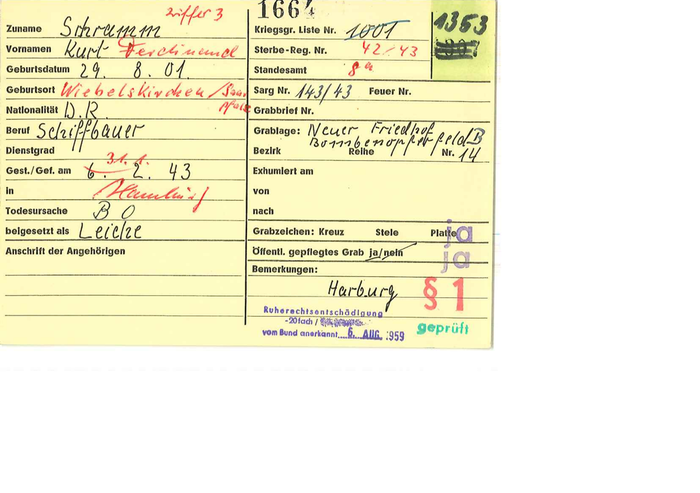 Ziffer 3
1664
1353
Zuname Schramm
Vornamen Kurt Ferdinand
Geburtsdatum 29. 8. 01.
Geburtsort Wiebelskirchen / Saar
Pfalz
Nationalität D.R.
Beruf Schiffbauer
Dienstgrad
31. 1.
Gest./Gef. am 6. 2. 43
in Hamburg
Todesursache B O
beigesetzt als Leiche
Anschrift der Angehörigen
Kriegsgr. Liste Nr. 1001
Sterbe-Reg. Nr. 42/43
Standesamt 8a
Sarg Nr. 143/43 Feuer Nr.
Grabbrief Nr.
Grablage: Neuer Friedhof
Bombenopferfeld B
Bezirk Reihe Nr. 14
Exhumiert am
von
nach
Grabzeichen: Kreuz Stele Platte ja
Öffentl. gepflegtes Grab ja/nein ja
Bemerkungen:
Harburg § 1
Ruherechtsentschädigung
-20fach /
vom Bund anerkannt 6. AUG. 1959
geprüft